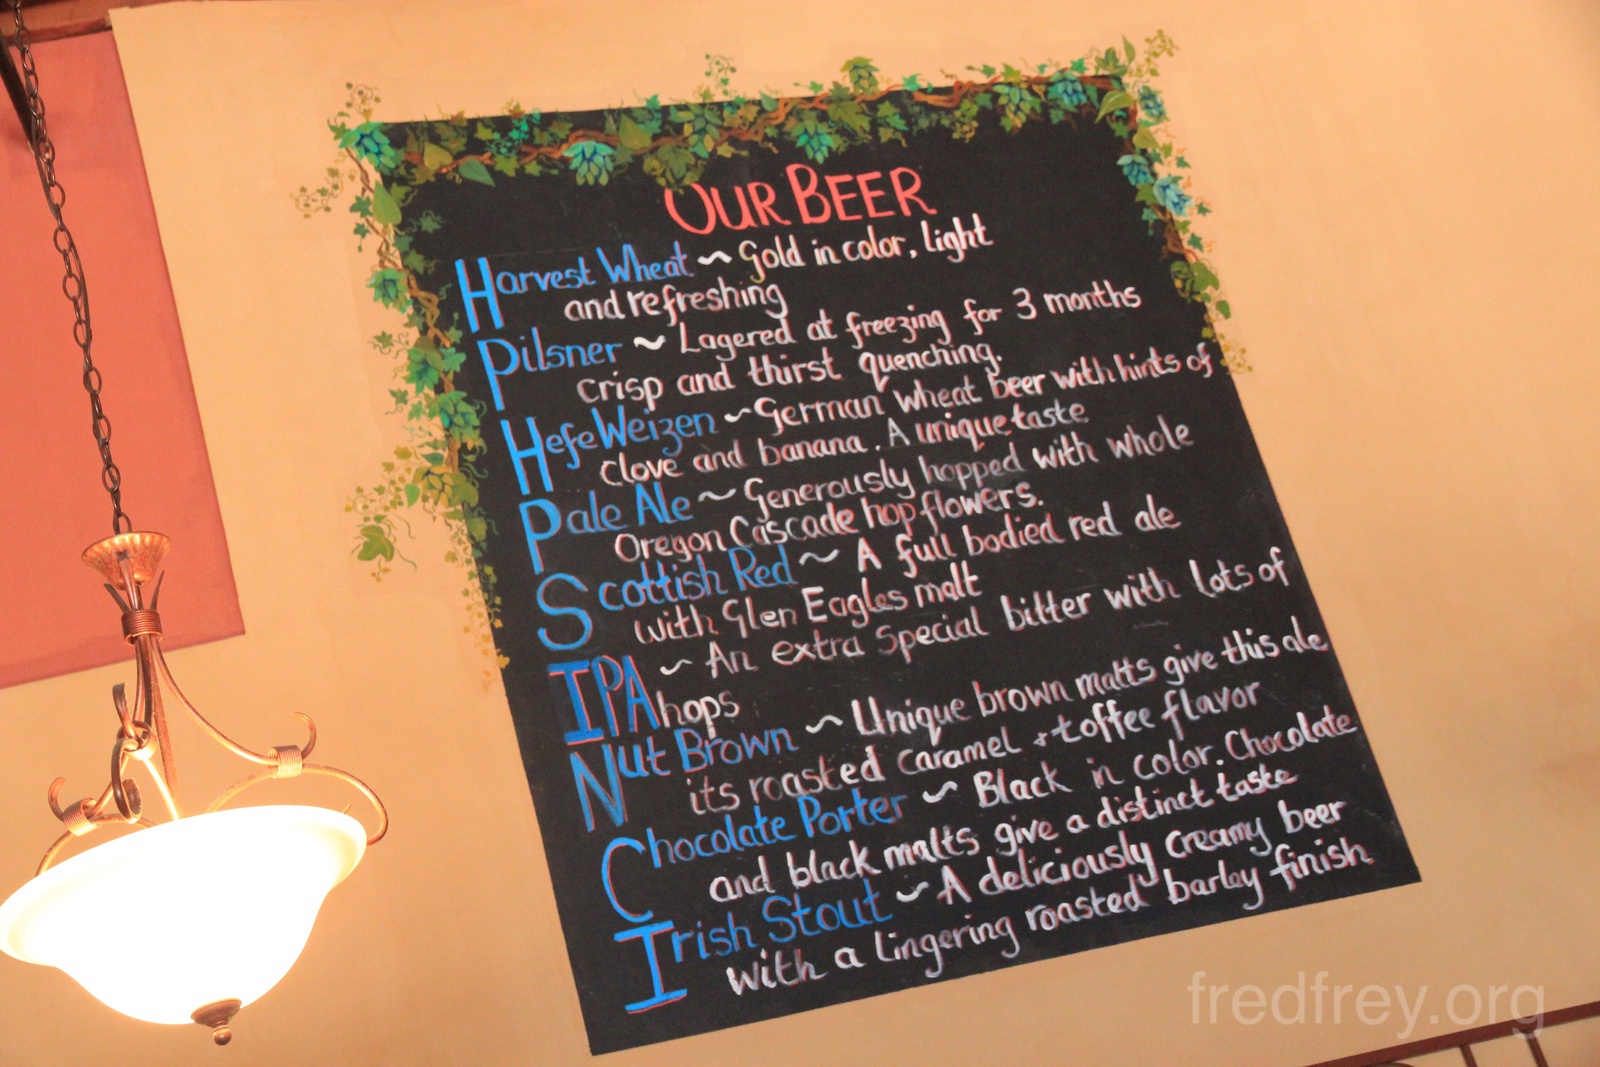 OUR BEER
Harvest Wheat ~ Gold in color, light
and refreshing
Pilsner ~ Lagered at freezing for 3 months
crisp and thirst quenching.
HefeWeizen ~ German wheat beer with hints of
clove and banana. A unique taste
Pale Ale ~ Generously hopped with whole
Oregon Cascade hop flowers.
Scottish Red ~ A full bodied red ale
with Glen Eagles malt
IPA ~ An extra special bitter with lots of
hops
Nut Brown ~ Unique brown malts give this ale
its roasted caramel + toffee flavor
Chocolate Porter ~ Black in color. Chocolate
and black malts give a distinct taste
Irish Stout ~ A deliciously creamy beer
with a lingering roasted barley finish
fredfrey.org